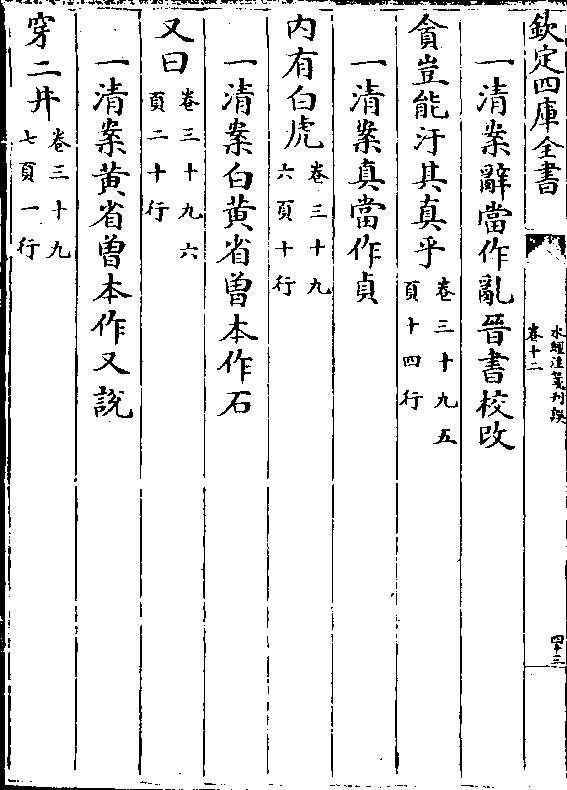 欽定四庫全書
水經注箋刊誤
卷十二
四十三
一清案辭當作亂晉書校改
貪豈能汙其真乎卷三十九五
頁十四行
一清案真當作貞
内有白虎卷三十九
六頁十行
一清案白黄省曾本作石
又曰卷三十九六
頁二十行
一清案黄省曾本作又說
穿二井卷三十九
七頁一行